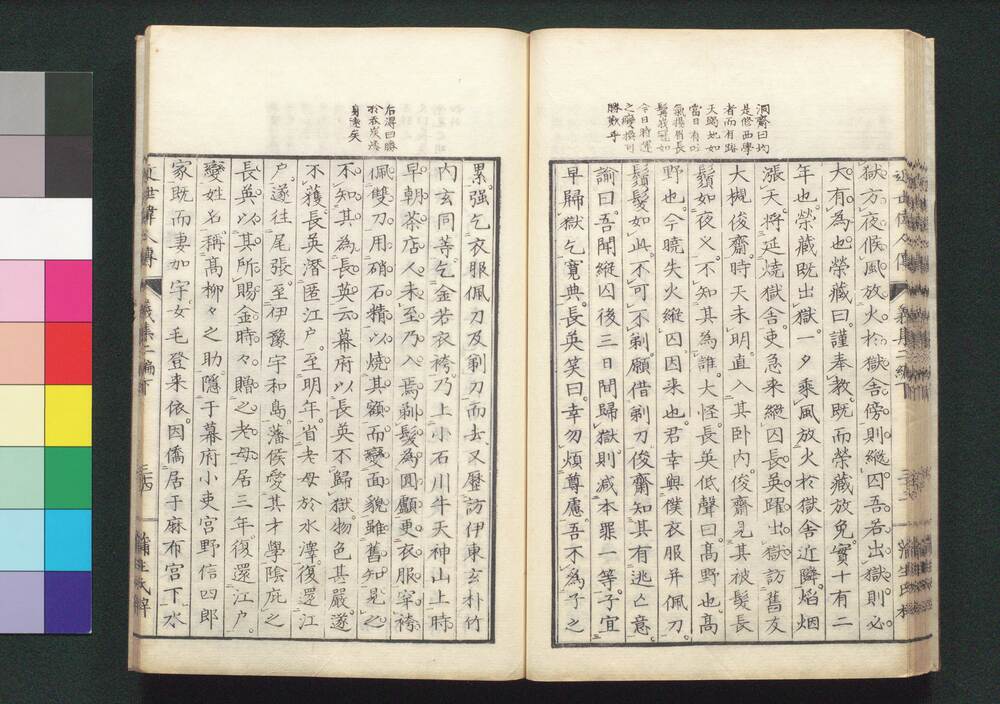 洞齋曰均
是修西學
者而有路
天渴地如
當日有吐
氣揚眉長
鬚戎冠如
今日時運
之變換可
勝歎乎
獄方夜候風放火於獄舍傍則縱囚吾若出獄則必
大有為也榮藏曰謹奉教既而榮藏放免實十有二
年也榮藏既出獄一夕乘風放火於獄舍近隣焰烟
漲天將延燒獄舍吏急來縱囚長英躍出獄訪舊友
大槻俊齋時天未明直入其臥內俊齋見其被髮長
鬚如夜叉不知其為誰大怪長英低聲曰高野也高
野也今曉失火縱囚因来也君幸與僕衣服并佩刀
鬚髮如此不可不剃願借剃刀俊齋知其有逃亡意
諭曰吾聞縱囚後三日間歸獄則減本罪一等子宜
早歸獄乞寬典長英笑曰幸勿煩尊慮吾不為子之
右溥曰勝
於吞炭漆
身遠矣
累強乞衣服佩刀及剃刀而去又歷訪伊東玄朴竹
内玄同等乞金若衣袴乃上小石川牛天神山上時
早朝茶店人未至乃入焉剃髮為圓顱更衣服穿袴
佩雙刀用硝石精以燒其額而變面貌雖舊知見之
不知其為長英云幕府以長英不歸獄物色甚嚴遂
不獲長英潛匿江户至明年省老母於水澤復還江
户遂往尾張至伊豫宇和島藩侯愛其才學陰庇之
長英以其所賜金時々贈之老母居三年復還江户
變姓名稱高柳々之助隱于幕府小吏宮野信四郎
家既而妻加字女毛登来依因僑居于麻布宮下水